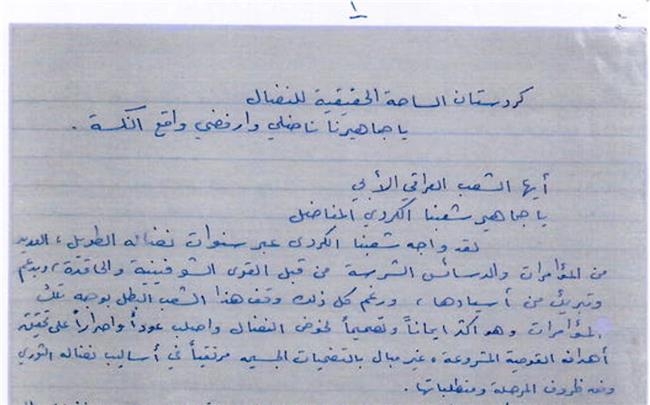 ١
كردستان الساحة الحقيقية للنضال
يا جماهيرنا ناضلي وارفضي واقع النكسة .
أيها الشعب العراقي الأبي
يا جماهير شعبنا الكردي المناضل
لقد واجه شعبنا الكردي عبر سنوات نضاله الطويل ، العديد
من المؤامرات والدسائس الشرسة من قبل القوى الشوفينية والحاقدة ، وبدعم
وتبريك من أسيادها ، ورغم كل ذلك وقف هذا الشعب البطل بوجه تلك
المؤامرات وهو اكثر ايماناً وتصميماً لخوض النضال واصلب عوداً واصراراً على تحقيق
أهدافه القومية المشروعة ، غير مبال بالتضحيات الجسيمه مرتقياً في أساليب نضاله الثوري
وفق ظروف المرحلة ومتطلباتها .